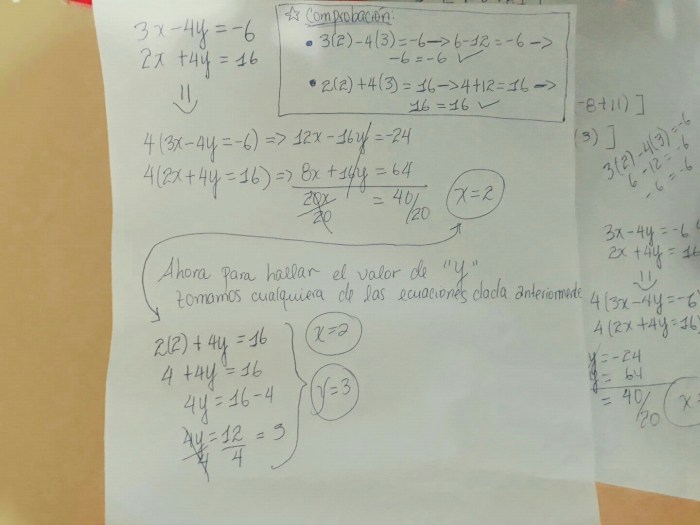 3x-4y=-6
2x+4y=16
☆ Comprobación:
• 3(2)-4(3)=-6→6-12=-6→
-6=-6 ✓
• 2(2)+4(3)=16→4+12=16→
16=16 ✓
4(3x-4y=-6)=>12x-16y=-24
4(2x+4y=16)=>8x+16y=64
20x/20 = 40/20
x=2
Ahora para hallar el valor de "y"
tomamos cualquiera de las ecuaciones dada anteriormente
2(2)+4y=16
4+4y=16
4y=16-4
4y/4=12/4=3
x=2
y=3
-8+11)]
3)]
3(2)-4(3)=-6
6-12=-6
-6=-6
3x-4y=-6
2x+4y=16
4(3x-4y=-6
4(2x+4y=16)
y=-24
y=64
=40/20
x=